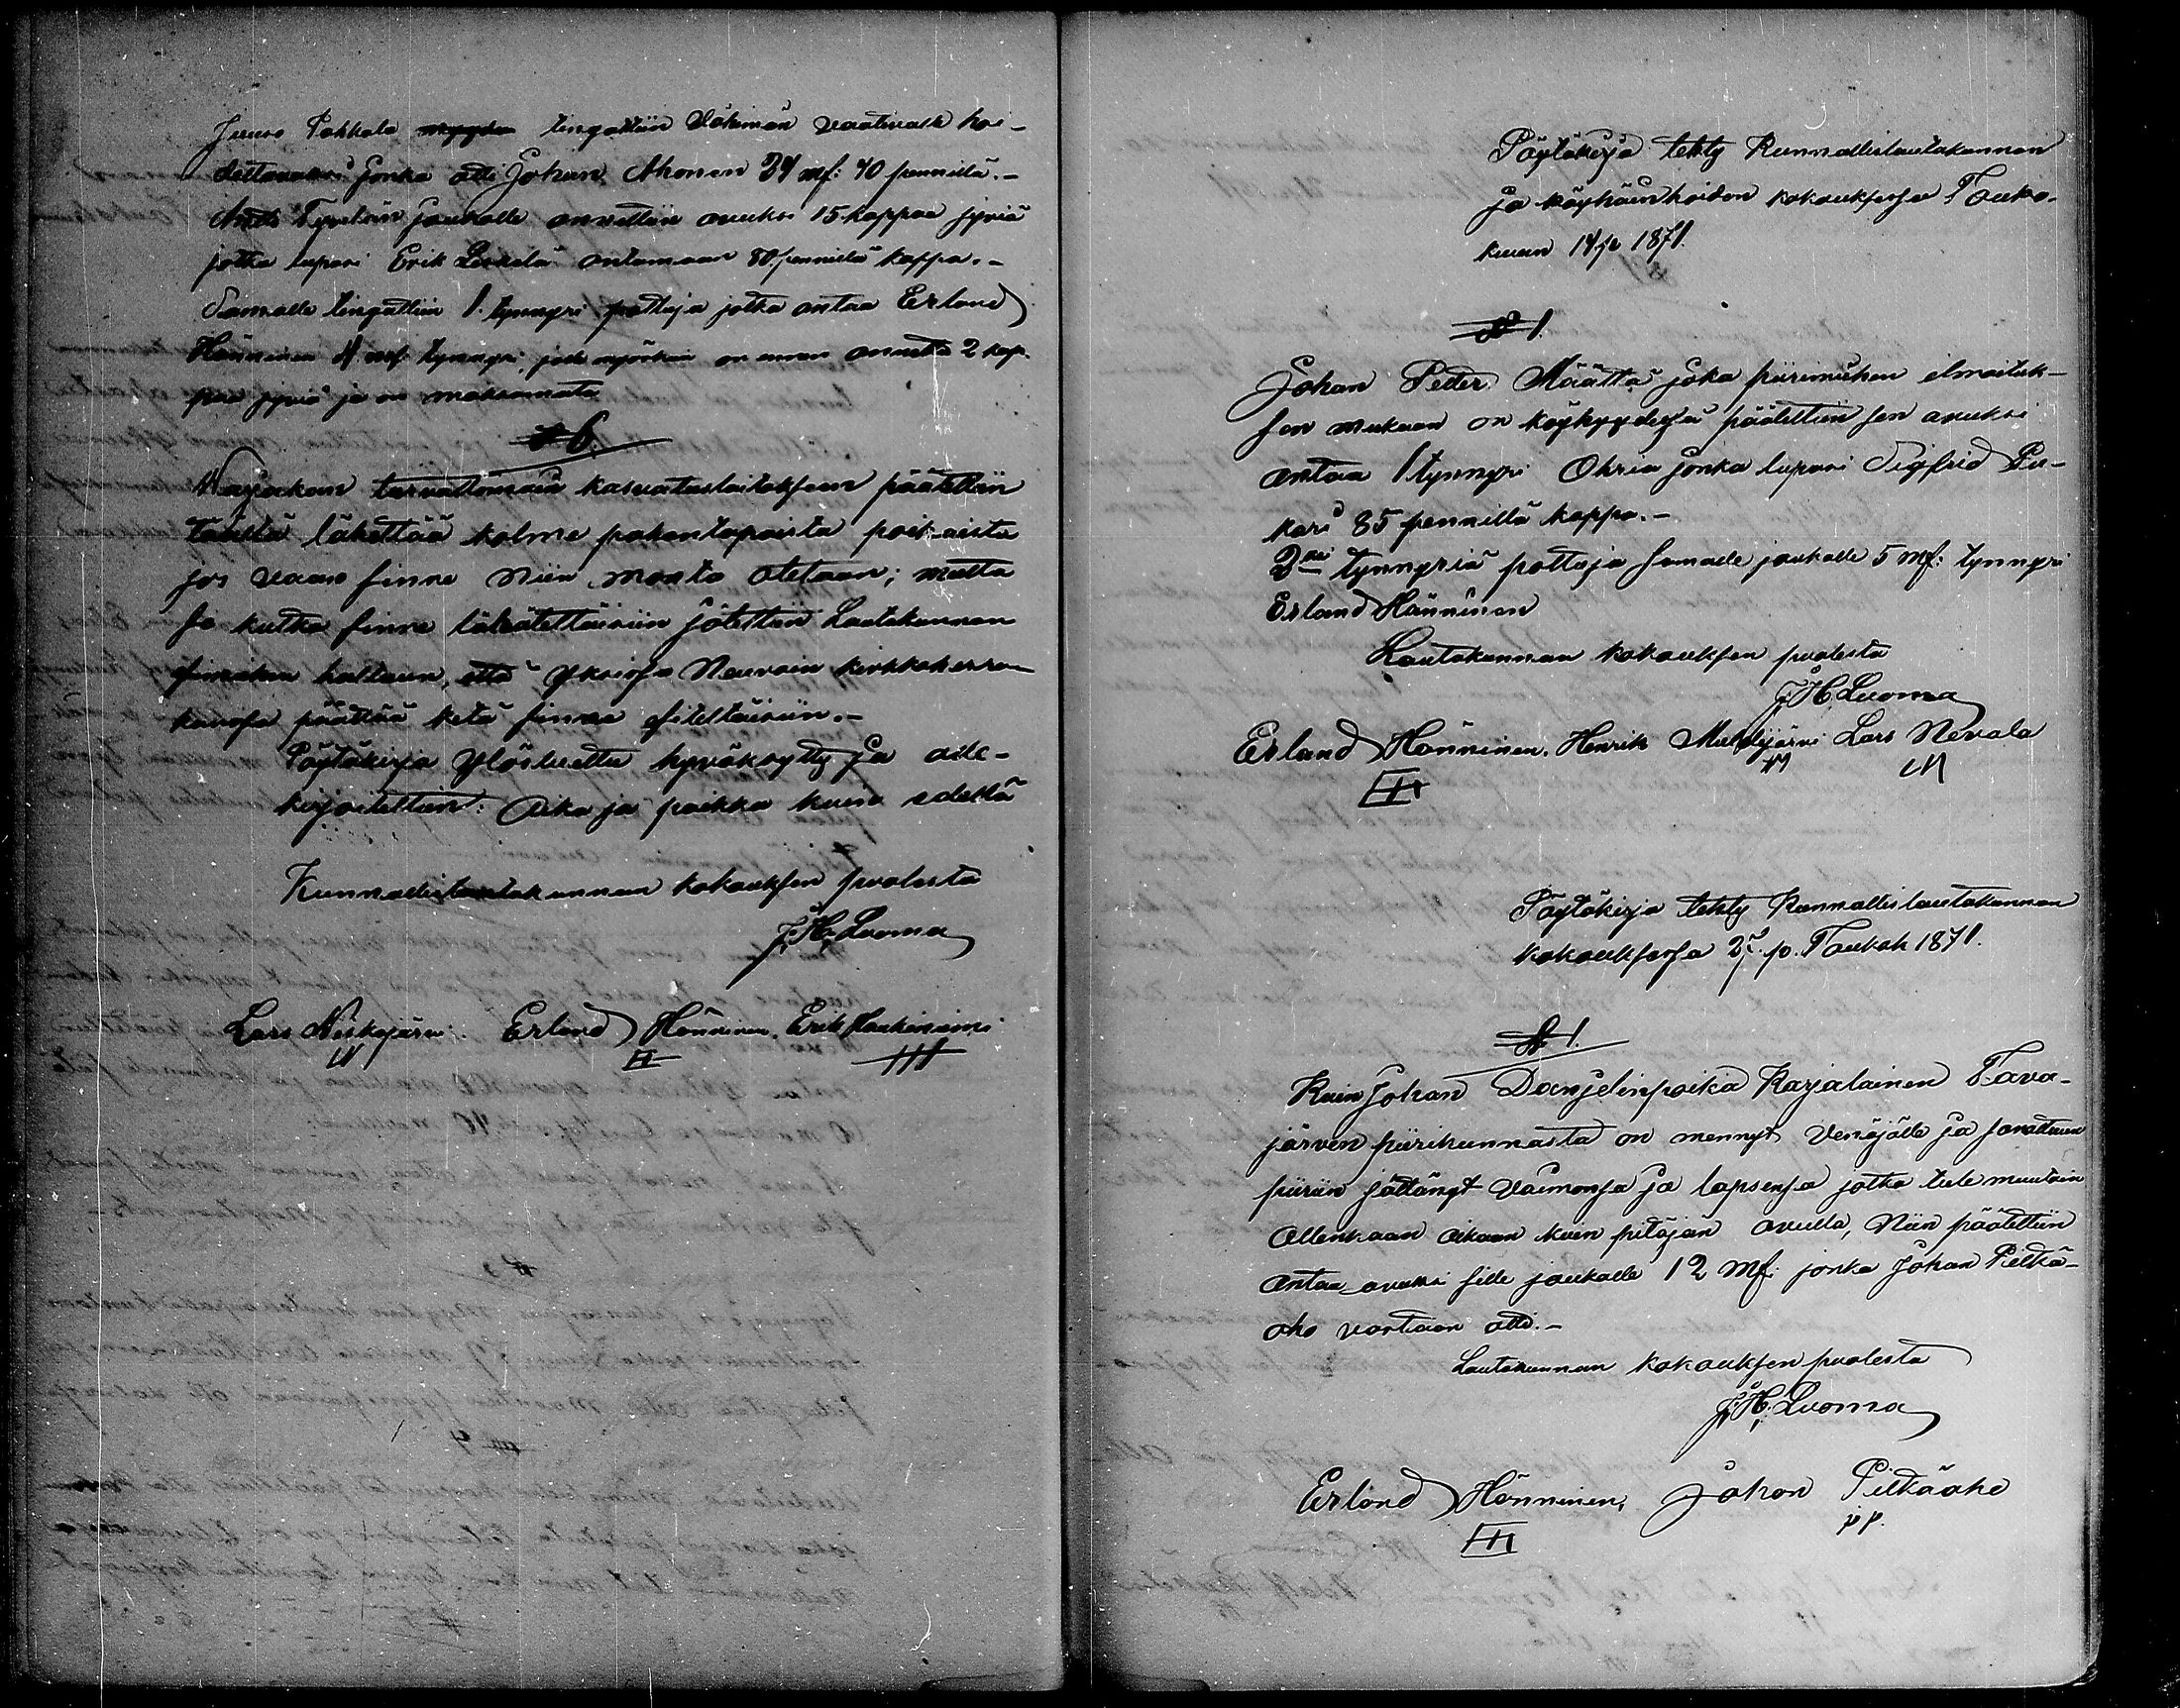 Juuso Pakkala tingattiin vähimän vaativalle hoi-
dettavaksi Jonka otti Johan Ahonen 24 mk: 70 pennillä.-
Antti Tyvelän joukolle annettiin avuksi 15 kappaa jyviä
jotka lupasi Erik Leskelä antamaan 80 pennillä kappa.-
Samalle tingattiin 1. tynnyri pottuja jotka antaa Erland
Hänninen 4 mk tynnyri, jolle myöskin on ennen annettu 2 kap-
paa jyviä ja on maksamata
§ 6.
turvattomain kasvatuslaitokseen päätettiin
täältä lähettää kolme pahantapaista poikaista
jos vaan sinne niin monta otetaan; mutta
ja kutka sinne lähätettäisiin jätettiin Lautakunnan
Esimiehen haltuun, että yksissä Neuvoin kirkkoherran
kanssa päättää ketä sinne esitettäisiin.-
Pöytäkirja ylösluettu hyväksytty ja alle-
kirjoitettiin: Aika ja paikka kuin edellä
Kunnallislautakunnan kokouksen puolesta
J. H. Luoma
Lars Niskajärvi. Erland Hänninen. Erik Haukiniemi
Pöytäkirja tehty Kunnallislautakunnan
ja köyhäinhoidon kokouksessa Touko-
kuun 14 p 1871.
§ 1.
Johan Peder Määttä joka piirimiehen ilmoituk-
sen mukaan on köyhyydessä päätettiin sen avuksi
antaa 1 tynnyri Ohria jonka lupasi Sigfrid Pu-
kari 85 pennillä kappa.-
2si tynnyriä pottuja samalle joukolle 5 mk: tynnyri
Erland Hänninen
Lautakunnan kokouksen puolesta
J. H. Luoma
Erland Hänninen. Henrik Mustajärvi Lars Nevala
Pöytäkirja tehty Kunnallislautakunnan
kokouksessa p. Toukok 1871.
§ 1.
Kuin Johan Danjelinpoika Karjalainen Tava-
järven piirikunnasta on mennyt Venäjälle ja sanottuun
piiriin jättänyt Vaimonsa ja lapsensa jotka tule muutoin
Ollenkaan aikaan kuin pitäjän avulla, Niin päätettiin
antaa avuksi sille joukolle 12 mk. jonka Johan Pitkä-
aho vastaan otti.-
Lautakunnan kokouksen puolesta
J. H. Luoma
Erland Hänninen, Johan Pitkäaho